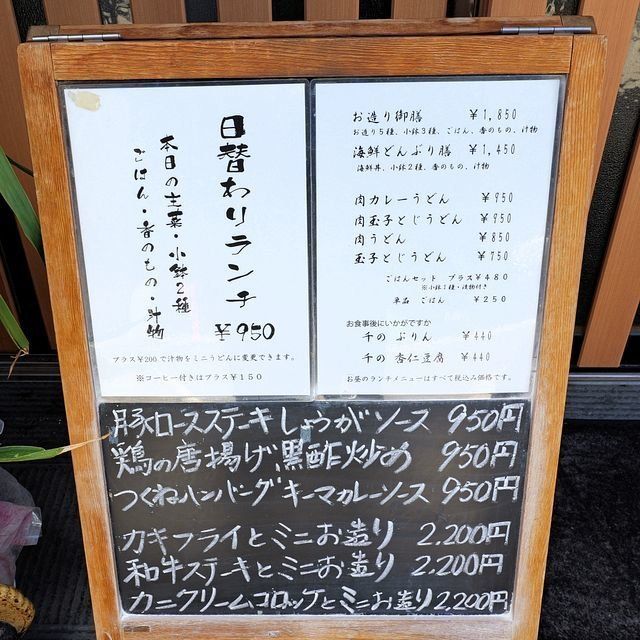 日替わりランチ
¥950
本日の主菜・小鉢２種
ごはん・香のもの・汁物
プラス¥200で汁物をミニうどんに変更できます。
※コーヒー付きはプラス¥150
お造り御膳 ¥1,850
お造り５種、小鉢３種、ごはん、香のもの、汁物
海鮮どんぶり膳 ¥1,450
海鮮丼、小鉢２種、香のもの、汁物
肉カレーうどん ¥950
肉玉子とじうどん ¥950
肉うどん ¥850
玉子とじうどん ¥750
ごはんセット プラス¥480
※小鉢１種・漬物付き
単品 ごはん ¥250
お食事後にいかがですか
千の ぷりん ¥440
千の 杏仁豆腐 ¥440
お昼のランチメニューはすべて税込み価格です。
豚ロースステーキしょうがソース 950円
鶏の唐揚げ黒酢炒め 950円
つくねハンバーグキーマカレーソース 950円
カキフライとミニお造り 2.200円
和牛ステーキとミニお造り 2.200円
カニクリームコロッケとミニお造り 2.200円